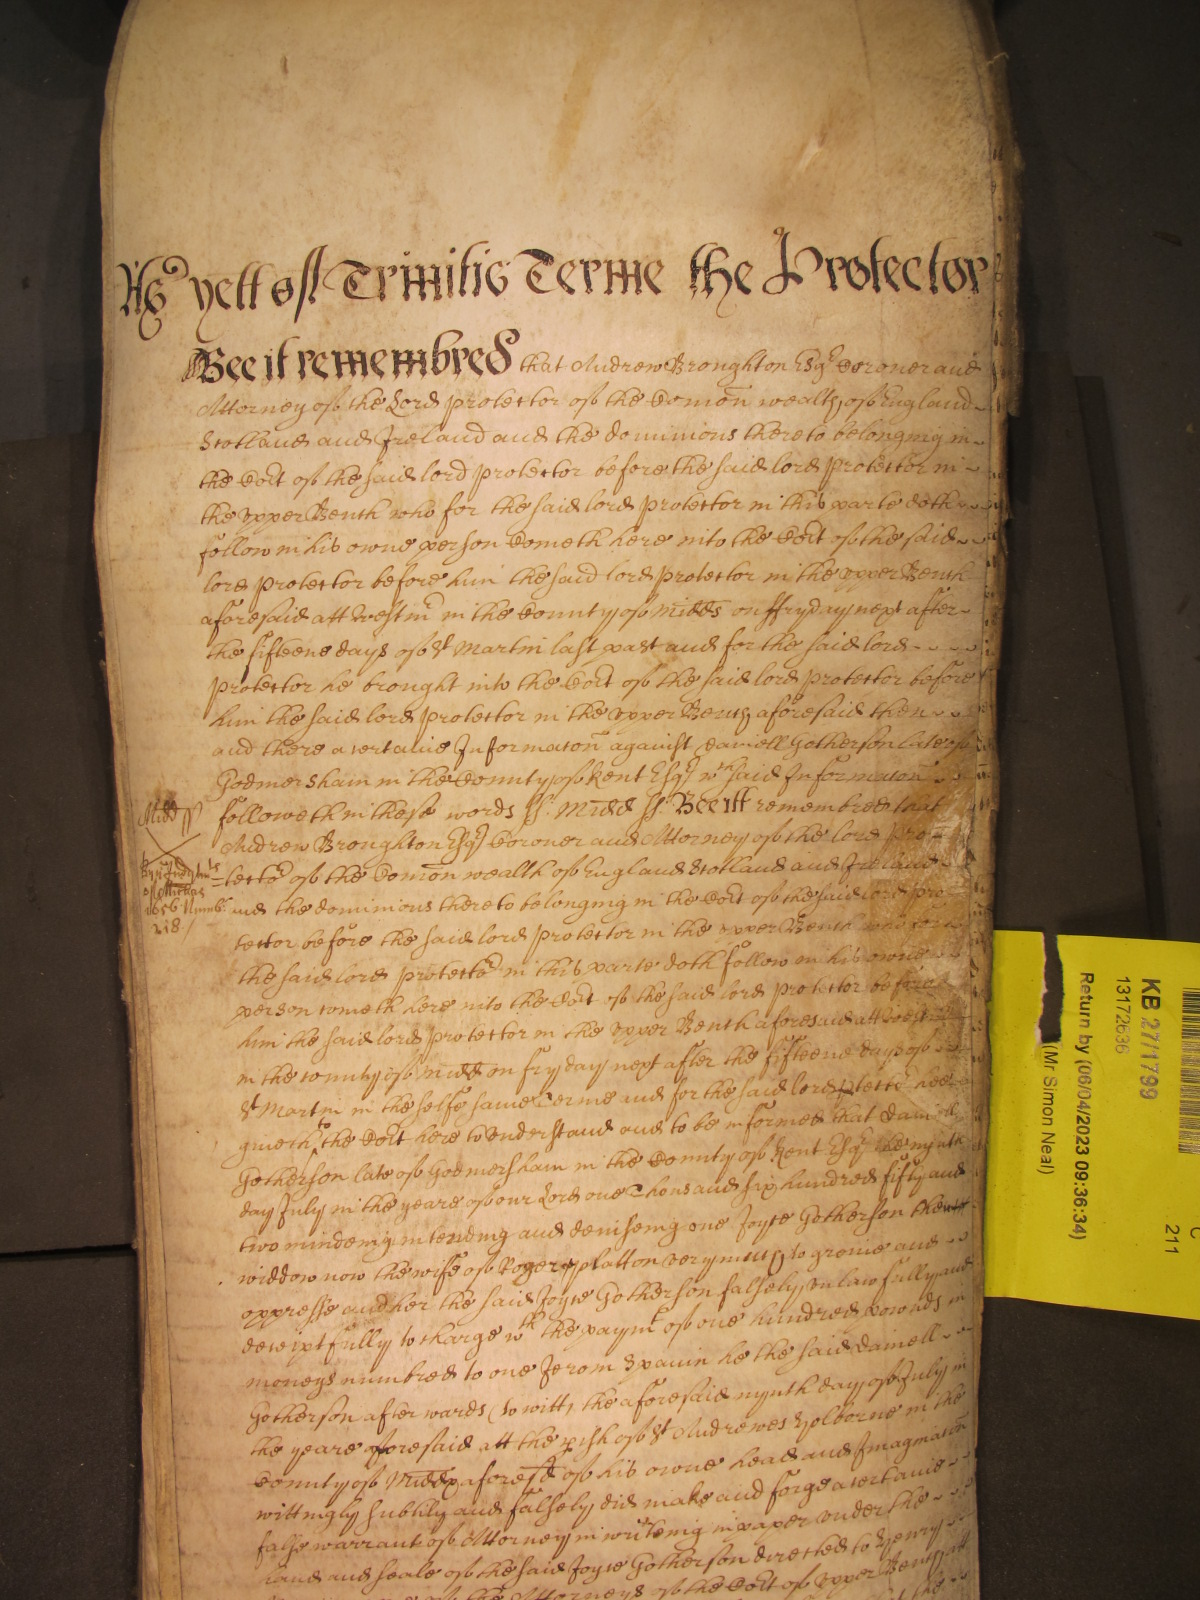 As yett of Trinitie Terme the Protector
Bee it remembred that Andrew Broughton Esqr Coroner and
Attorney of the Lord protector of the Comon wealth of England
Scotland and Ireland and the dominions thereto belonging in
the Cort of the said lord protector before the said lord protector in
the upper Bench who for the said lord protector in this parte doth
follow in his owne person Cometh here into the Cort of the said
lord protector before him the said lord protector in the upper Bench
aforesaid att Westmr in the County of Midds on ffryday next after
the fifteene days of St Martin last past and for the said lord
protector he brought into the Cort of the said lord protector before
him the said lord protector in the upper Bench aforesaid then
and there a certaine Informaton against Daniell Gotherson late of
Godmersham in the County of Kent Esqr wch said Informaton
followeth in these words ss. Midd ss. Bee itt remembred that
Midd ss
Andrew Broughton Esqr Coroner and Attorney of the lord pro
tector of the Comon wealth of England Scotland and Ireland
and the dominions thereto belonging in the Cort of the said lord pro
of Michas
1656 Numb:
218
tector before the said lord protector in the upper Bench who for
the said lord protector in this parte doth follow in his owne
person cometh here into the Cort of the said lord protector before
him the said lord protector in the upper Bench aforesaid att Westmr
in the county of Midd on fryday next after the fifteene days of
St Martin in the selfe same Terme and for the said lord ptector hee
giveth to the Cort here to understand and to be informed that Daniell
Gotherson late of Godmersham in the County of Kent Esqr the nynth
day July in the yeare of our Lord one Thousand six hundred fifty and
two mindeing intending and deviseing one Joyce Gotherson then
widdow now the wife of Roger platton very much to greive and
oppresse and her the said Joyce Gotherson falsely unlawfully and
deceiptfully to charge wth the paymt of one hundred pownds in
moneys numbred to one Jerom Spavin he the said Daniell
Gotherson after wards (to witt) the aforesaid nynth day of July in
the yeare aforesaid att the pish of St Andrewes Holborne in the
County of Midd aforesd of his owne head and Imaginaton
wittingly subtily and falsely did make and forge a certaine
false warrant of Attorney in writeing in paper under the
hand and seale of the said Joyce Gotherson directed to Henry
of the Attorneys of the Cort of Upper Bench att
KB 27/1799
13172636
Return by (06/04/2023 09:36:34)
(Mr Simon Neal)
C
211